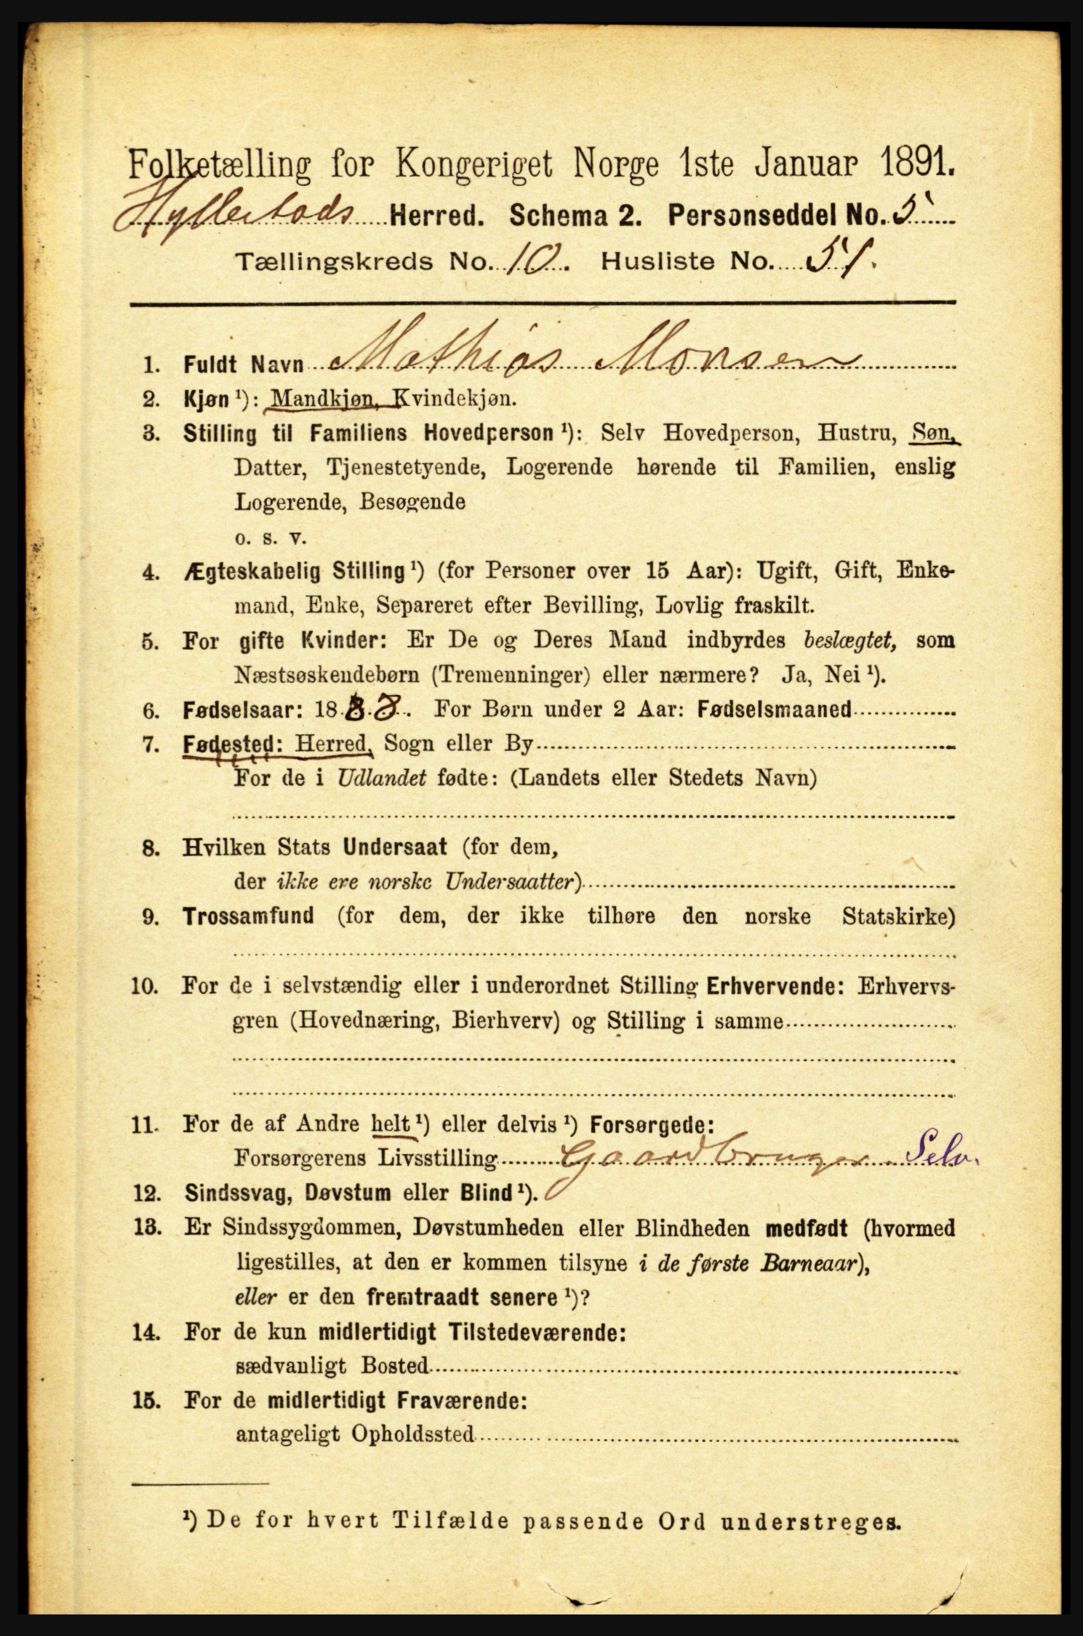 Folketælling for Kongeriget Norge 1ste Januar 1891.
Hyllestads Herred. Schema 2. Personseddel No. 5
Tællingskreds No. 10. Husliste No. 51.
1. Fuldt Navn Mathias Monsen
2. Kjøn ¹): Mandkjøn, Kvindekjøn.
3. Stilling til Familiens Hovedperson ¹): Selv Hovedperson, Hustru, Søn,
Datter, Tjenestetyende, Logerende hørende til Familien, enslig
Logerende, Besøgende
o. s. v.
4. Ægteskabelig Stilling ¹) (for Personer over 15 Aar): Ugift, Gift, Enke-
mand, Enke, Separeret efter Bevilling, Lovlig fraskilt.
5. For gifte Kvinder: Er De og Deres Mand indbyrdes beslægtet, som
Næstsøskendebørn (Tremenninger) eller nærmere? Ja, Nei ¹).
6. Fødselsaar: 1888. For Børn under 2 Aar: Fødselsmaaned
7. Fødested: Herred, Sogn eller By
For de i Udlandet fødte: (Landets eller Stedets Navn)
8. Hvilken Stats Undersaat (for dem,
der ikke ere norske Undersaatter)
9. Trossamfund (for dem, der ikke tilhøre den norske Statskirke)
10. For de i selvstændig eller i underordnet Stilling Erhvervende: Erhvervs-
gren (Hovednæring, Bierhverv) og Stilling i samme
11. For de af Andre helt ¹) eller delvis ¹) Forsørgede:
Forsørgerens Livsstilling Gaardbruger Selv.
12. Sindssvag, Døvstum eller Blind ¹).
13. Er Sindssygdommen, Døvstumheden eller Blindheden medfødt (hvormed
ligestilles, at den er kommen tilsyne i de første Barneaar),
eller er den fremtraadt senere ¹)?
14. For de kun midlertidigt Tilstedeværende:
sædvanligt Bosted
15. For de midlertidigt Fraværende:
antageligt Opholdssted
¹) De for hvert Tilfælde passende Ord understreges.